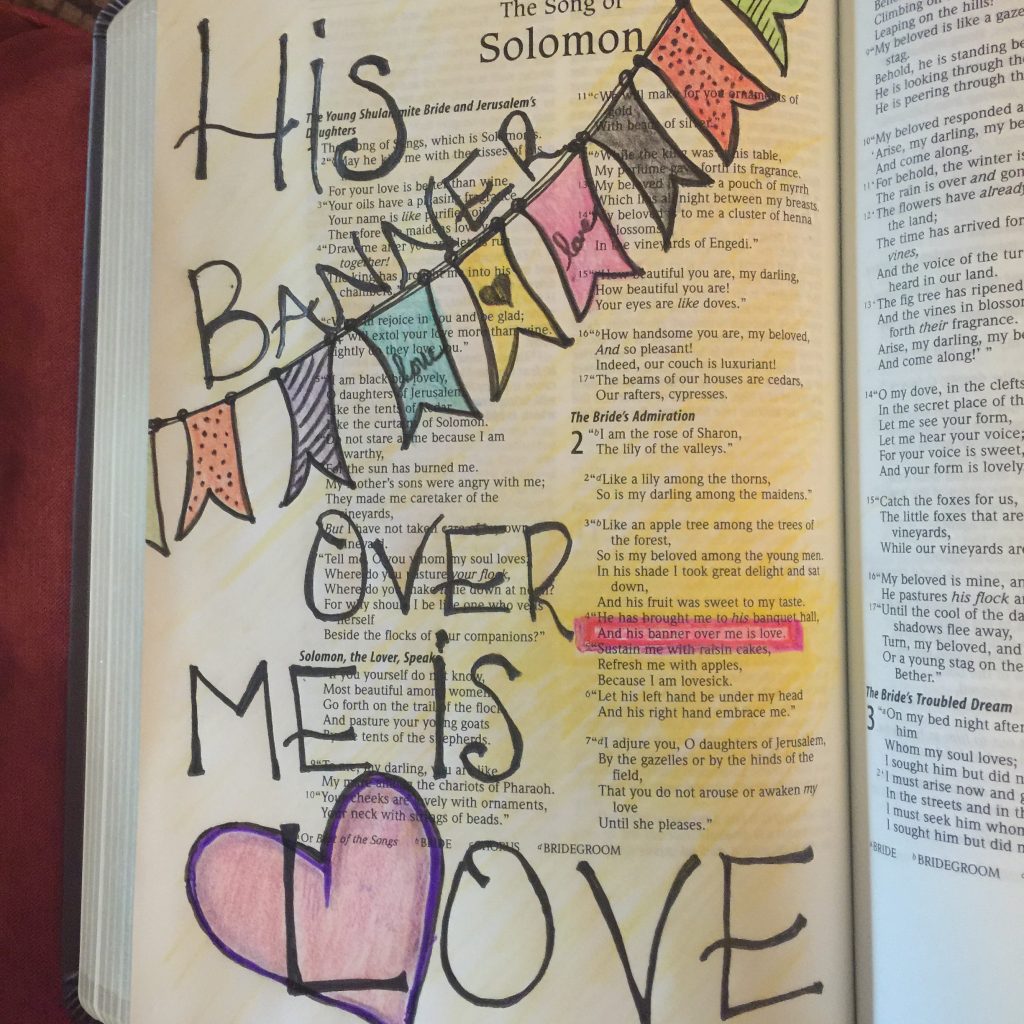 The Song of
Solomon
His
BANNER
OVER
ME is
LOVE
love
love
The Young Shulammite Bride and Jerusalem's
Daughters
The Song of Songs, which is Solomon's.
2 "May he kiss me with the kisses of his
For your love is better than wine.
3 "Your oils have a pleasing fragrance,
Your name is like purified oil;
Therefore the maidens love you.
4 "Draw me after you let us run
together!
The king has brought me into his
chambers."
rejoice in you and be glad;
will extol your love more than wine.
Rightly do they love you."
5 "I am black but lovely,
O daughters of Jerusalem,
Like the tents of Kedar,
Like the curtains of Solomon.
Do not stare at me because I am
swarthy,
For the sun has burned me.
My mother's sons were angry with me;
They made me caretaker of the
vineyards,
But I have not taken care of my own
vineyard.
"Tell me, O you whom my soul loves,
Where do you pasture your flock,
Where do you make it lie down at noon?
For why should I be like one who veils
herself
Beside the flocks of your companions?"
Solomon, the Lover, Speaks
"If you yourself do not know,
Most beautiful among women,
Go forth on the trail of the flock
And pasture your young goats
By the tents of the shepherds.
9 "To me, my darling, you are like
My mare among the chariots of Pharaoh.
10 "Your cheeks are lovely with ornaments,
Your neck with strings of beads."
Or Best of the Songs b BRIDE c CHORUS d BRIDEGROOM
11 "c We will make for you ornaments of
gold
With beads of silver."
"b While the king was at his table,
My perfume gave forth its fragrance.
13 My beloved is to me a pouch of myrrh
Which lies all night between my breasts.
14 "My beloved is to me a cluster of henna
blossoms
In the vineyards of Engedi."
15 "How beautiful you are, my darling,
How beautiful you are!
Your eyes are like doves."
16 "b How handsome you are, my beloved,
And so pleasant!
Indeed, our couch is luxuriant!
17 "The beams of our houses are cedars,
Our rafters, cypresses.
The Bride's Admiration
2 "b I am the rose of Sharon,
The lily of the valleys."
2 "d Like a lily among the thorns,
So is my darling among the maidens."
3 "b Like an apple tree among the trees of
the forest,
So is my beloved among the young men.
In his shade I took great delight and sat
down,
And his fruit was sweet to my taste.
4 "He has brought me to his banquet hall,
And his banner over me is love.
5 "Sustain me with raisin cakes,
Refresh me with apples,
Because I am lovesick.
6 "Let his left hand be under my head
And his right hand embrace me."
7 "d I adjure you, O daughters of Jerusalem,
By the gazelles or by the hinds of the
field,
That you do not arouse or awaken my
love
Until she pleases."
Climbing on
Leaping on the hills!
9 "My beloved is like a gaze
stag.
Behold, he is standing be
He is looking through th
He is peering through th
10 "My beloved responded a
'Arise, my darling, my be
And come along.
11 'For behold, the winter is
The rain is over and gon
12 'The flowers have already
the land;
The time has arrived for
vines,
And the voice of the tur
heard in our land.
13 'The fig tree has ripened
And the vines in blossom
forth their fragrance.
Arise, my darling, my be
And come along!' "
14 "O my dove, in the clefts
In the secret place of th
Let me see your form,
Let me hear your voice;
For your voice is sweet,
And your form is lovely
15 "Catch the foxes for us,
The little foxes that are
vineyards,
While our vineyards are
16 "My beloved is mine, an
He pastures his flock a
17 "Until the cool of the da
shadows flee away,
Turn, my beloved, and
Or a young stag on the
Bether."
The Bride's Troubled Dream
3 "a On my bed night after
him
Whom my soul loves;
I sought him but did n
2 'I must arise now and g
In the streets and in th
I must seek him whom
I sought him but did n
a BRIDE b BRIDEGROOM